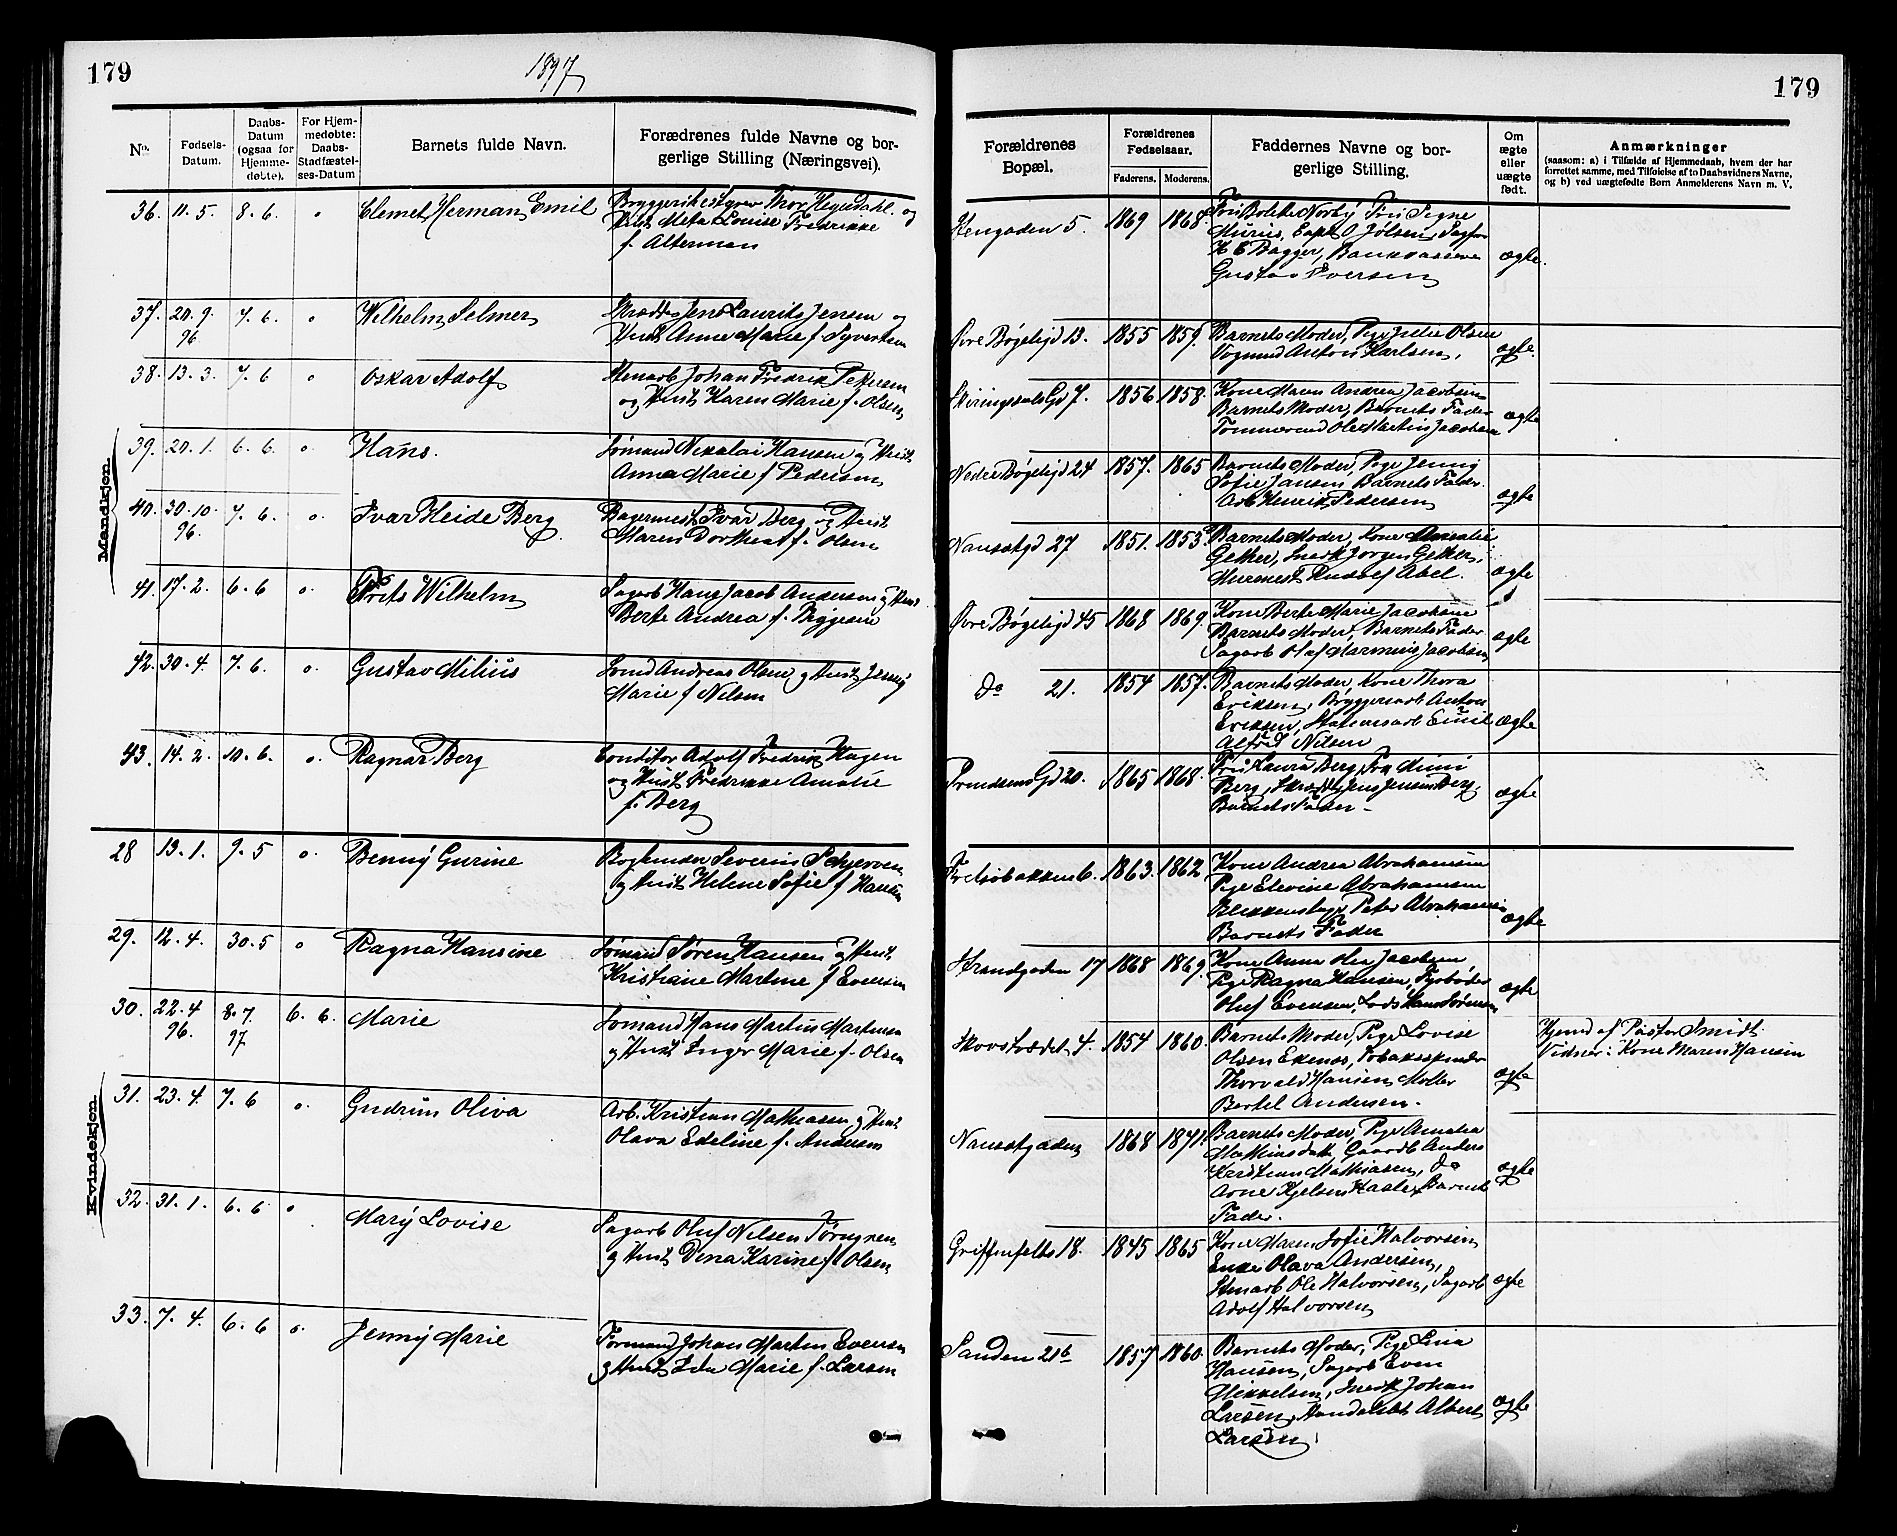 179
1897
179
No.
Fødsels-Datum.
Daabs-Datum (ogsaa for Hjemme-døbte).
For Hjem-medøbte: Daabs-Stadfæstel-ses-Datum
Barnets fulde Navn.
Forædrenes fulde Navne og bor-
gerlige Stilling (Næringsvei).
Forældrenes
Bopæl.
Forældrenes
Fødselsaar.
Faderens.
Moderens.
Faddernes Navne og bor-
gerlige Stilling.
Om
ægte
eller
uægte
født.
Anmærkninger
(saasom: a) i Tilfælde af Hjemmedaab, hvem der har
forrettet samme, med Tilføielse af to Daabsvidners Navne,
og b) ved uægtefødte Børn Anmelderens Navn m. V.
Mandkjøn.
36. 11. 5. 8. 6. o Clemet Herman Emil
Bryggeribestyrer Thor Heyerdahl og
Hust. Meta Lovise Fredrikke
f. Alterman
5. 1869 1868.
Gustav Iversen
ægte.
37. 20. 9. 96. 7. 6. o Wilhelm Selmer
Jens Laurits Jensen og
Hust Anne Marie f. Syvertsen
Øvre Bøgeligd 13. 1855 1859.
Barnets Moder, Pige Julie Olsen
Vognmd Anton Karlsen,
ægte.
38. 13. 3. 7. 6 o Oskar Adolf
Johan Fredrik Pettersen
og Hust Karen Marie f. Olsen
Skiringssals Gd 7. 1856 1858.
Kone Maren Andrea Jacobsen
Barnets Moder, Barnets Fader
Tømmermd Ole Martin Jacobsen
ægte
39. 20. 1. 6. 6. o. Hans.
Sømand Nikolai Hansen og Hust
Anna Marie f Pedersen
Nedre Bøgeligd 24 1857. 1865
Barnets Moder, Pige Jenny
Sofie Jansen Barnets Fader.
Arb Henrik Pedersen
ægte
40. 30. 10. 96. 7. 6. o. Ivar Heide Berg.
Bagermest. Ivar Berg og Hust
Maren Dorthea f. Olsen
Nansetgd 27 1851. 1853
Barnets Moder, Kone Amalie
Gether, Snedk Jørgen Gether,
Murmest. Rudolf Abel.
ægte
41. 17. 2. 6. 6 o. Frits Wilhelm
Sagarb Hans Jacob Andersen og Hust
Berte Andrea f.
Øvre Bøgeligd 45 1868 1869.
Kone Berte Marie Jacobsen
Barnets Moder, Barnets Fader
Sagarb Olaf Marinius Jacobsen
ægte
42. 30. 4. 7. 6. o. Gustav Milius
Sømd Andreas Olsen og Hust Jenny
Marie f Nilsen
do 21. 1854 1857.
Barnets Moder, Kone Thora
Eriksen, Bryggeriarb Anton
Eriksen, Emil
Alfred Nilsen
ægte
43. 14. 2. 10. 6. o. Ragnar Berg
Conditor Adolf Fredrik Hagen
og Hust Fredrikke Amalie
f. Berg
20. 1865 1868.
Fru Laura Berg, Mimi
Berg, Jens Jensen Berg,
Barnets Fader –
ægte
Kvindekjøn.
28 13. 1. 9. 5 o. Benny Gurine
Bogbinder Severin Schjerven
og Hust Helene Sofie f Hansen
6. 1863. 1862
Kone Andrea Abrahamsen
Pige Elevine Abrahamsen
Peter Abrahamsen
Barnets Fader
ægte
29. 12. 4. 30. 5 o Ragna Hansine
Sømand Søren Hansen og Hust
Kristiane Martine f Evensen
Strandgaden 17 1868 1869.
Kone Anne Jacobsen,
Pige Ragna Hansen, Fyrbøder
Oluf Evensen,
ægte
30. 22. 4 96. 8. 7. 97. 6. 6. Marie
Sømand Hans Martin Martinsen
og Hust Inger Marie f. Olsen
4. 1854 1860.
Barnets Moder, Pige Lovise
Olsen Ekenes, Tobaksspinder
Thorvald Hansen Møller
Bertel Andersen.
ægte
Hjemd af Pastor Smidt
Vidner: Kone Maren Hansen
31. 23. 4. 7. 6 o. Gudrun Oliva
Arb. Kristian Mathiasen og Hust
Olava Edeline f. Andersen
Nansetgaden 1868 1871.
Barnets Moder, Pige Amalia
Gaardb Anders
Kristian Mathiasen, do
Arne Kjelsen Barnets
Fader.
ægte
32. 31. 1. 6. 6 o Mary Lovise
Sagarb Oluf Nilsen
og Hust Dina Karine f Olsen
Griffenfelts 18. 1845 1865
Kone Maren Sofie Halvorsen
Enke Olava Andersen,
Ole Halvorsen, Sagarb
Adolf Halvorsen
ægte
33. 7. 4. 6. 6 o. Jenny Marie
Formand Johan Martin Evensen
og Hust Marie f. Larsen
Sanden 21b 1857 1860.
Barnets Moder, Pige Lina
Hansen, Sagarb Even
Mikkelsen, Snedk Johan
Larsen, Albert
Larsen.
ægte